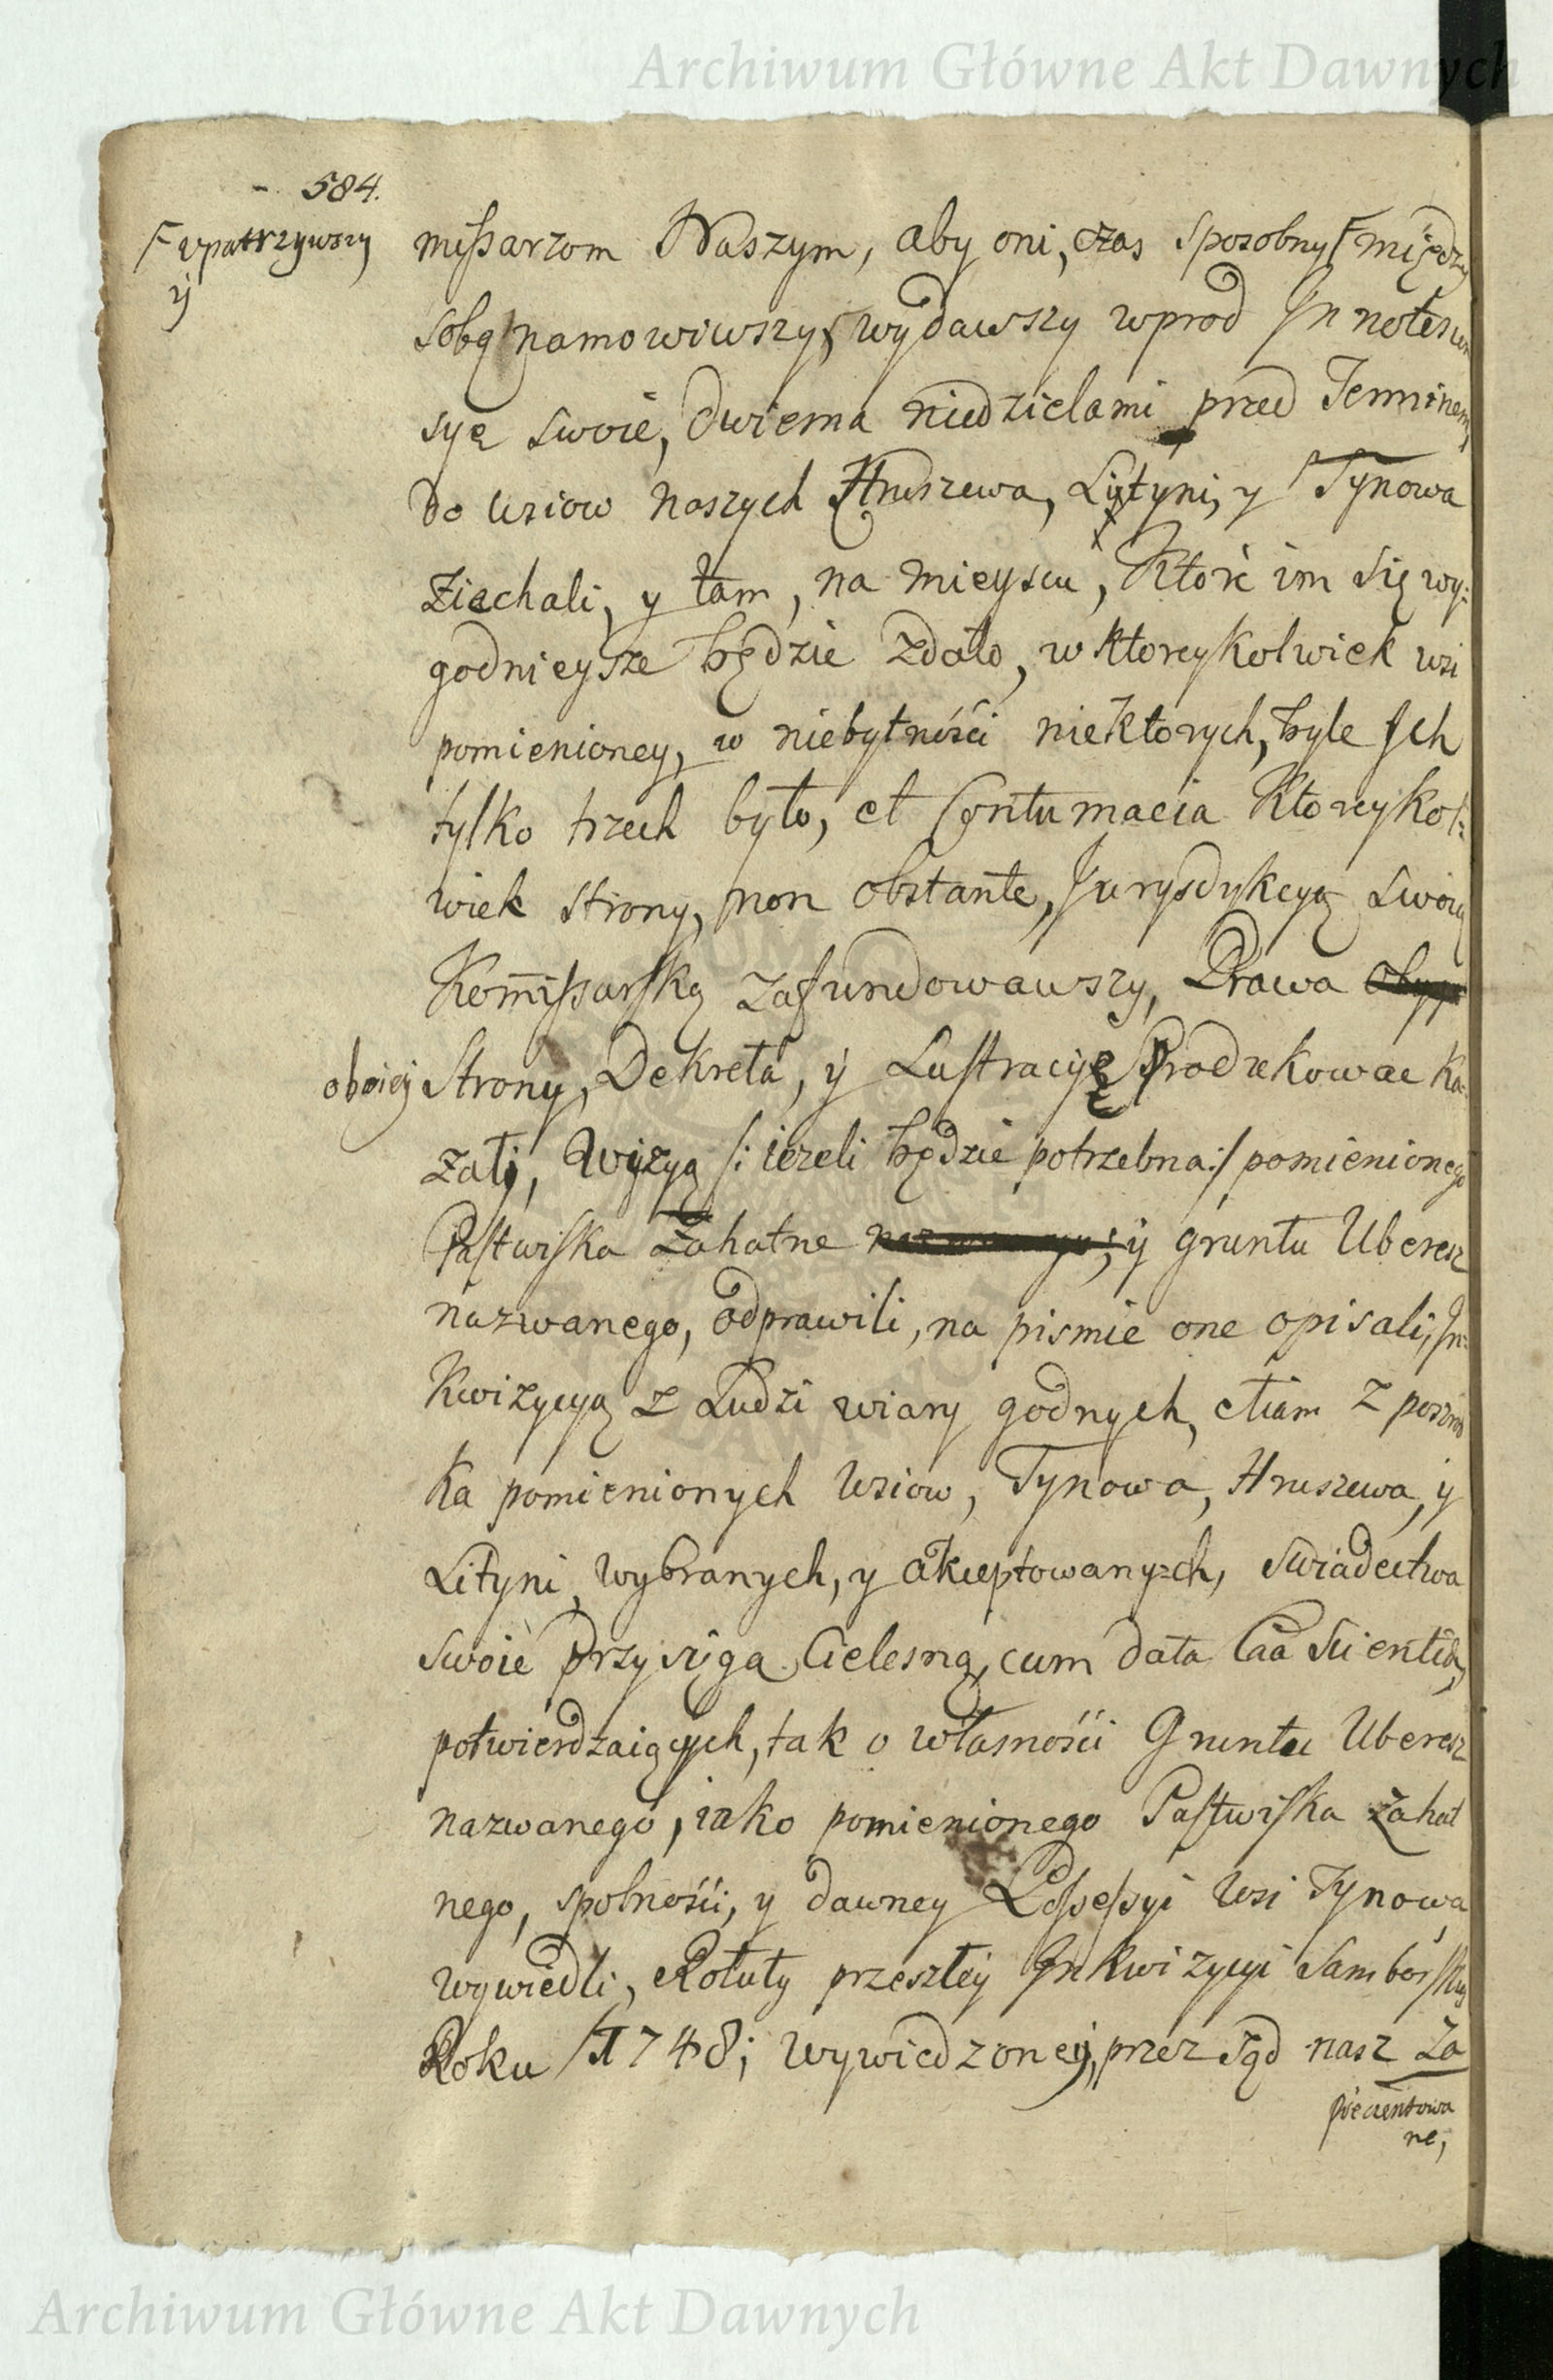 Archiwum Główne Akt Dawnych
584.
upatrzywszy
ÿ
mißarzom Naszym, aby oni, czas sposobny między
sobą namowiwszy, wydawszy wprod Innotescen
syę swoie, dwiema niedzielami przed Terminem,
do wsiow naszych Hruszewa, Lityni, y Tynowa
ziechali, y tam, na mieyscu, ktore im się wy:
godnieysze będzie zdało, w ktoreykolwiek wsi
pomienioney, w niebytności niektorych, byle Ich
tylko trzech było, et Contumacia ktoreykol:
wiek strony, non obstante, Jurysdykcyą swoię
Kommißarską zafundowawszy, Prawa
oboiey Strony, Dekreta, ÿ Lustracyę Produkowac ka
zali, Wizyą /: iezeli będzie potrzebna :/ pomienionego
Pastwiska Zahatne ÿ gruntu Uberesz
nazwanego, odprawili, na pismie one opisali, In:
kwizycyą z Ludzi wiary godnych, etiam z posrod
ka pomienionych wsiow, Tynowa, Hruszewa, ÿ
Lityni, wybranych, y akceptowanych, swiadectwa
swoie przysięgą Cielesną, cum data Caa Scientia,
potwierdzaiących, tak o własności Gruntu Uberesz
nazwanego, iako pomienionego Pastwiska Zahat
nego, spolności, y dawney Poßeßyi wsi Tynowa
wywiedli, Rotuły przeszłey Inkwizycyi Samborskiey
Roku 1748; wywiedzoney, przez sąd nasz Za
pieczentowa
ne,
Archiwum Główne Akt Dawnych